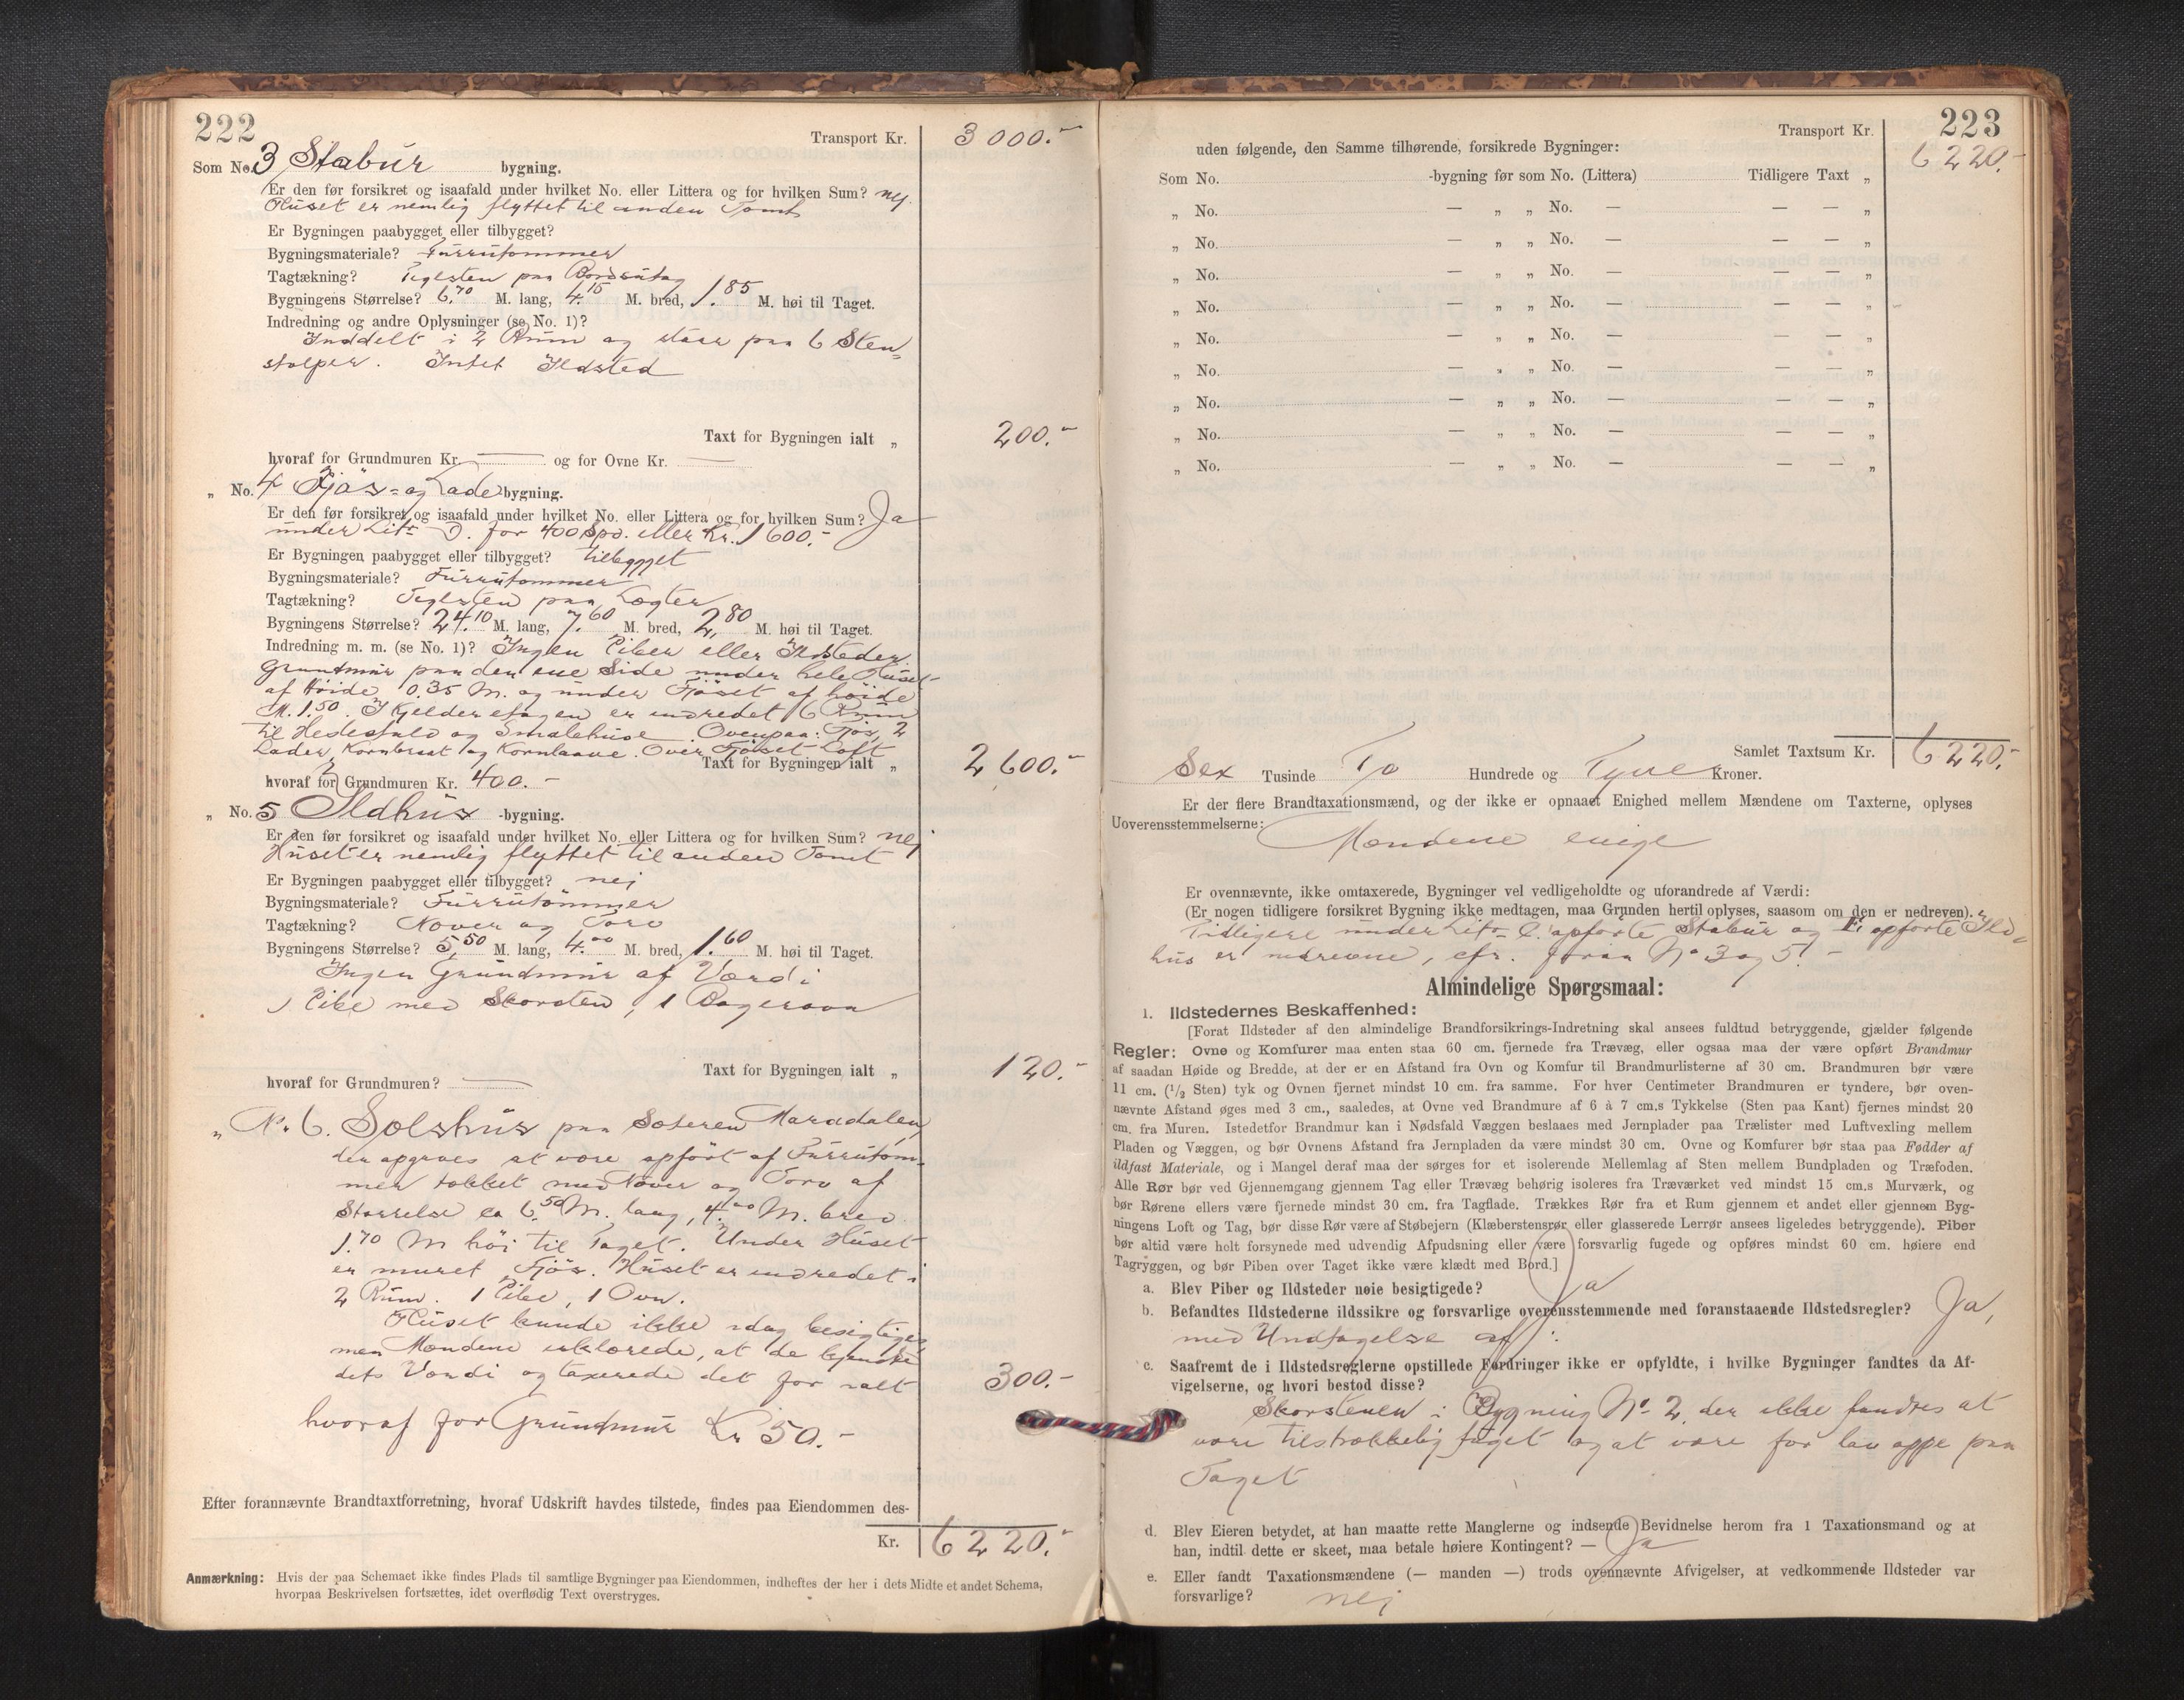 222
Transport Kr. 3000.-
Som No. 3 Stabur bygning.
Er den før forsikret og isaafald under hvilket No. eller Littera og for hvilken Sum? nej.
Huset er nemlig flyttet til anden Tomt
Er Bygningen paabygget eller tilbygget?
Bygningsmateriale? Furrutømmer
Tagtækning? Teglsten paa Bordsutag
Bygningens Størrelse? 6,70 M. lang, 4,15 M. bred, 1.85 M. høi til Taget.
Indredning og andre Oplysninger (se No. 1)?
Inddelt i 2 Rum og staar paa 6 Sten-
stolper. Intet Ildsted
Taxt for Bygningen ialt „ 200.-
hvoraf for Grundmuren Kr. — og for Ovne Kr. —
„ No. 4 Fjøs- og Lade bygning.
Er den før forsikret og isaafald under hvilket No. eller Littera og for hvilken Sum? Ja
under Litr D. for 400 Spd. eller Kr. 1600.-
Er Bygningen paabygget eller tilbygget? tilbygget
Bygningsmateriale? Furrutømmer
Tagtækning? Teglsten paa Lægter
Bygningens Størrelse? 24.10 M. lang, 7.60 M. bred, 2,80 M. høi til Taget.
Indredning m. m. (se No. 1)? Ingen Piber eller Ildsteder.
Grundmur paa den ene Side under hele Huset
af Høide 0.35 M. og under Fjøset af høide
M. 1.50. I Kjelderetagen er indredet 6 Rum
til Hestestald og Smalehuse. Ovenpaa: Fjøs, 2
Lader, Kornbrast og Kornlaave. Over Fjøset Loft
Taxt for Bygningen ialt „ 2600.-
hvoraf for Grundmuren Kr. 400.-
„ No. 5 Ildhus -bygning.
Er den før forsikret og isaafald under hvilket No. eller Littera og for hvilken Sum? nej
Huset er nemlig flyttet til anden Tomt
Er Bygningen paabygget eller tilbygget? nej
Bygningsmateriale? Furrutømmer
Tagtækning? Næver og Torv
Bygningens Størrelse? 5,50 M. lang, 4.00 M. bred, 1.60 M. høi til Taget.
Ingen Grundmur af Værdi
1 Pibe med Skorsten, 1 Bagerovn
Taxt for Bygningen ialt „ 120.-
hvoraf for Grundmuren? —
„ No. 6. Sølshus paa Sæteren Maradalen,
der opgaves at være opført af Furrutøm-
mer tækket med Næver og Torv af
Størrelse ca 6.50 M. lang, 4.00 M. bred
1.70 M høi til Taget. Under Huset
er muret Fjøs. Huset er indredet i
2 Rum. 1 Pibe, 1 Ovn.
Huset kunde ikke idag besigtiges,
men Mændene erklærede, at de kjendte
dets Værdi og taxerede det for ialt 300.-
hvoraf for Grundmur Kr 50.-
Efter forannævnte Brandtaxtforretning, hvoraf Udskrift havdes tilstede, findes paa Eiendommen des-
Kr. 6220.-
Anmærkning: Hvis der paa Schemaet ikke findes Plads til samtlige Bygninger paa Eiendommen, indheftes der her i dets Midte et andet Schema,
hvorpaa Beskrivelsen fortsættes, idet overflødig Text overstryges.
223
Transport Kr. 6220.-
uden følgende, den Samme tilhørende, forsikrede Bygninger:
Som No. -bygning før som No. (Littera) Tidligere Taxt „
„ No. — „ „ No. — — — „
„ No. — „ „ No. — — — „
„ No. — „ „ No. — — — „
„ No. — „ „ No. — — — „
„ No. — „ „ No. — — — „
„ No. — „ „ No. — — — „
„ No. — „ „ No. — — — „
„ No. — „ „ No. — — — „
„ No. — „ „ No. — — — „
Samlet Taxtsum Kr. 6220.-
Sex Tusinde To Hundrede og Tyve Kroner.
Er der flere Brandtaxationsmænd, og der ikke er opnaaet Enighed mellem Mændene om Taxterne, oplyses
Uoverensstemmelserne: Mændene enige
Er ovennævnte, ikke omtaxerede, Bygninger vel vedligeholdte og uforandrede af Værdi:
(Er nogen tidligere forsikret Bygning ikke medtagen, maa Grunden hertil oplyses, saasom om den er nedreven).
Tidligere under Litr C. opførte Stabur og E. opførte Ild-
hus er nedrevne, cfr. foran No 3 og 5. -
Almindelige Spørgsmaal:
1. Ildstedernes Beskaffenhed:
[Forat Ildsteder af den almindelige Brandforsikrings-Indretning skal ansees fuldtud betryggende, gjælder følgende
Regler: Ovne og Komfurer maa enten staa 60 cm. fjernede fra Trævæg, eller ogsaa maa der være opført Brandmur
af saadan Høide og Bredde, at der er en Afstand fra Ovn og Komfur til Brandmurlisterne af 30 cm. Brandmuren bør være
11 cm. (1/2 Sten) tyk og Ovnen fjernet mindst 10 cm. fra samme. For hver Centimeter Brandmuren er tyndere, bør oven-
nævnte Afstand øges med 3 cm., saaledes, at Ovne ved Brandmure af 6 à 7 cm.s Tykkelse (Sten paa Kant) fjernes mindst 20
cm. fra Muren. Istedetfor Brandmur kan i Nødsfald Væggen beslaaes med Jernplader paa Trælister med Luftvexling mellem
Pladen og Væggen, og bør Ovnens Afstand fra Jernpladen da være mindst 30 cm. Ovne og Komfurer bør staa paa Fødder af
ildfast Materiale, og i Mangel deraf maa der sørges for et isolerende Mellemlag af Sten mellem Bundpladen og Træfoden.
Alle Rør bør ved Gjennemgang gjennem Tag eller Trævæg behørig isoleres fra Træværket ved mindst 15 cm.s Murværk, og
bør Rørene ellers være fjernede mindst 30 cm. fra Tagflade. Trækkes Rør fra et Rum gjennem et andet eller gjennem Byg-
ningens Loft og Tag, bør disse Rør være af Støbejern (Klæberstensrør eller glasserede Lerrør ansees ligeledes betryggende). Piber
bør altid være helt forsynede med udvendig Afpudsning eller være forsvarlig fugede og opføres mindst 60 cm. høiere end
Tagryggen, og bør Piben over Taget ikke være klædt med Bord.]
a. Blev Piber og Ildsteder nøie besigtigede? Ja
b. Befandtes Ildstederne ildssikre og forsvarlige overensstemmende med foranstaaende Ildstedsregler? Ja,
med Undtagelse af :
c. Saafremt de i Ildstedsreglerne opstillede Fordringer ikke er opfyldte, i hvilke Bygninger fandtes da Af-
vigelserne, og hvori bestod disse?
Skorstenen i Bygning No 2, der ikke fandtes at
være tilstrækkelig fuget og at være for lav oppe paa
Taget
d. Blev Eieren betydet, at han maatte rette Manglerne og indsende Bevidnelse herom fra 1 Taxationsmand og at
han, indtil dette er skeet, maa betale høiere Kontingent? — Ja
e. Eller fandt Taxationsmændene (— manden —) trods ovennævnte Afvigelser, at vedkommende Ildsteder var
forsvarlige? nej